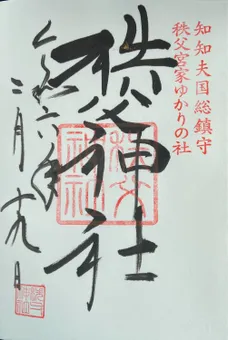 知知夫国総鎮守
秩父宮家ゆかりの社
秩父神社
令和六年
二月十九日
秩父
神社